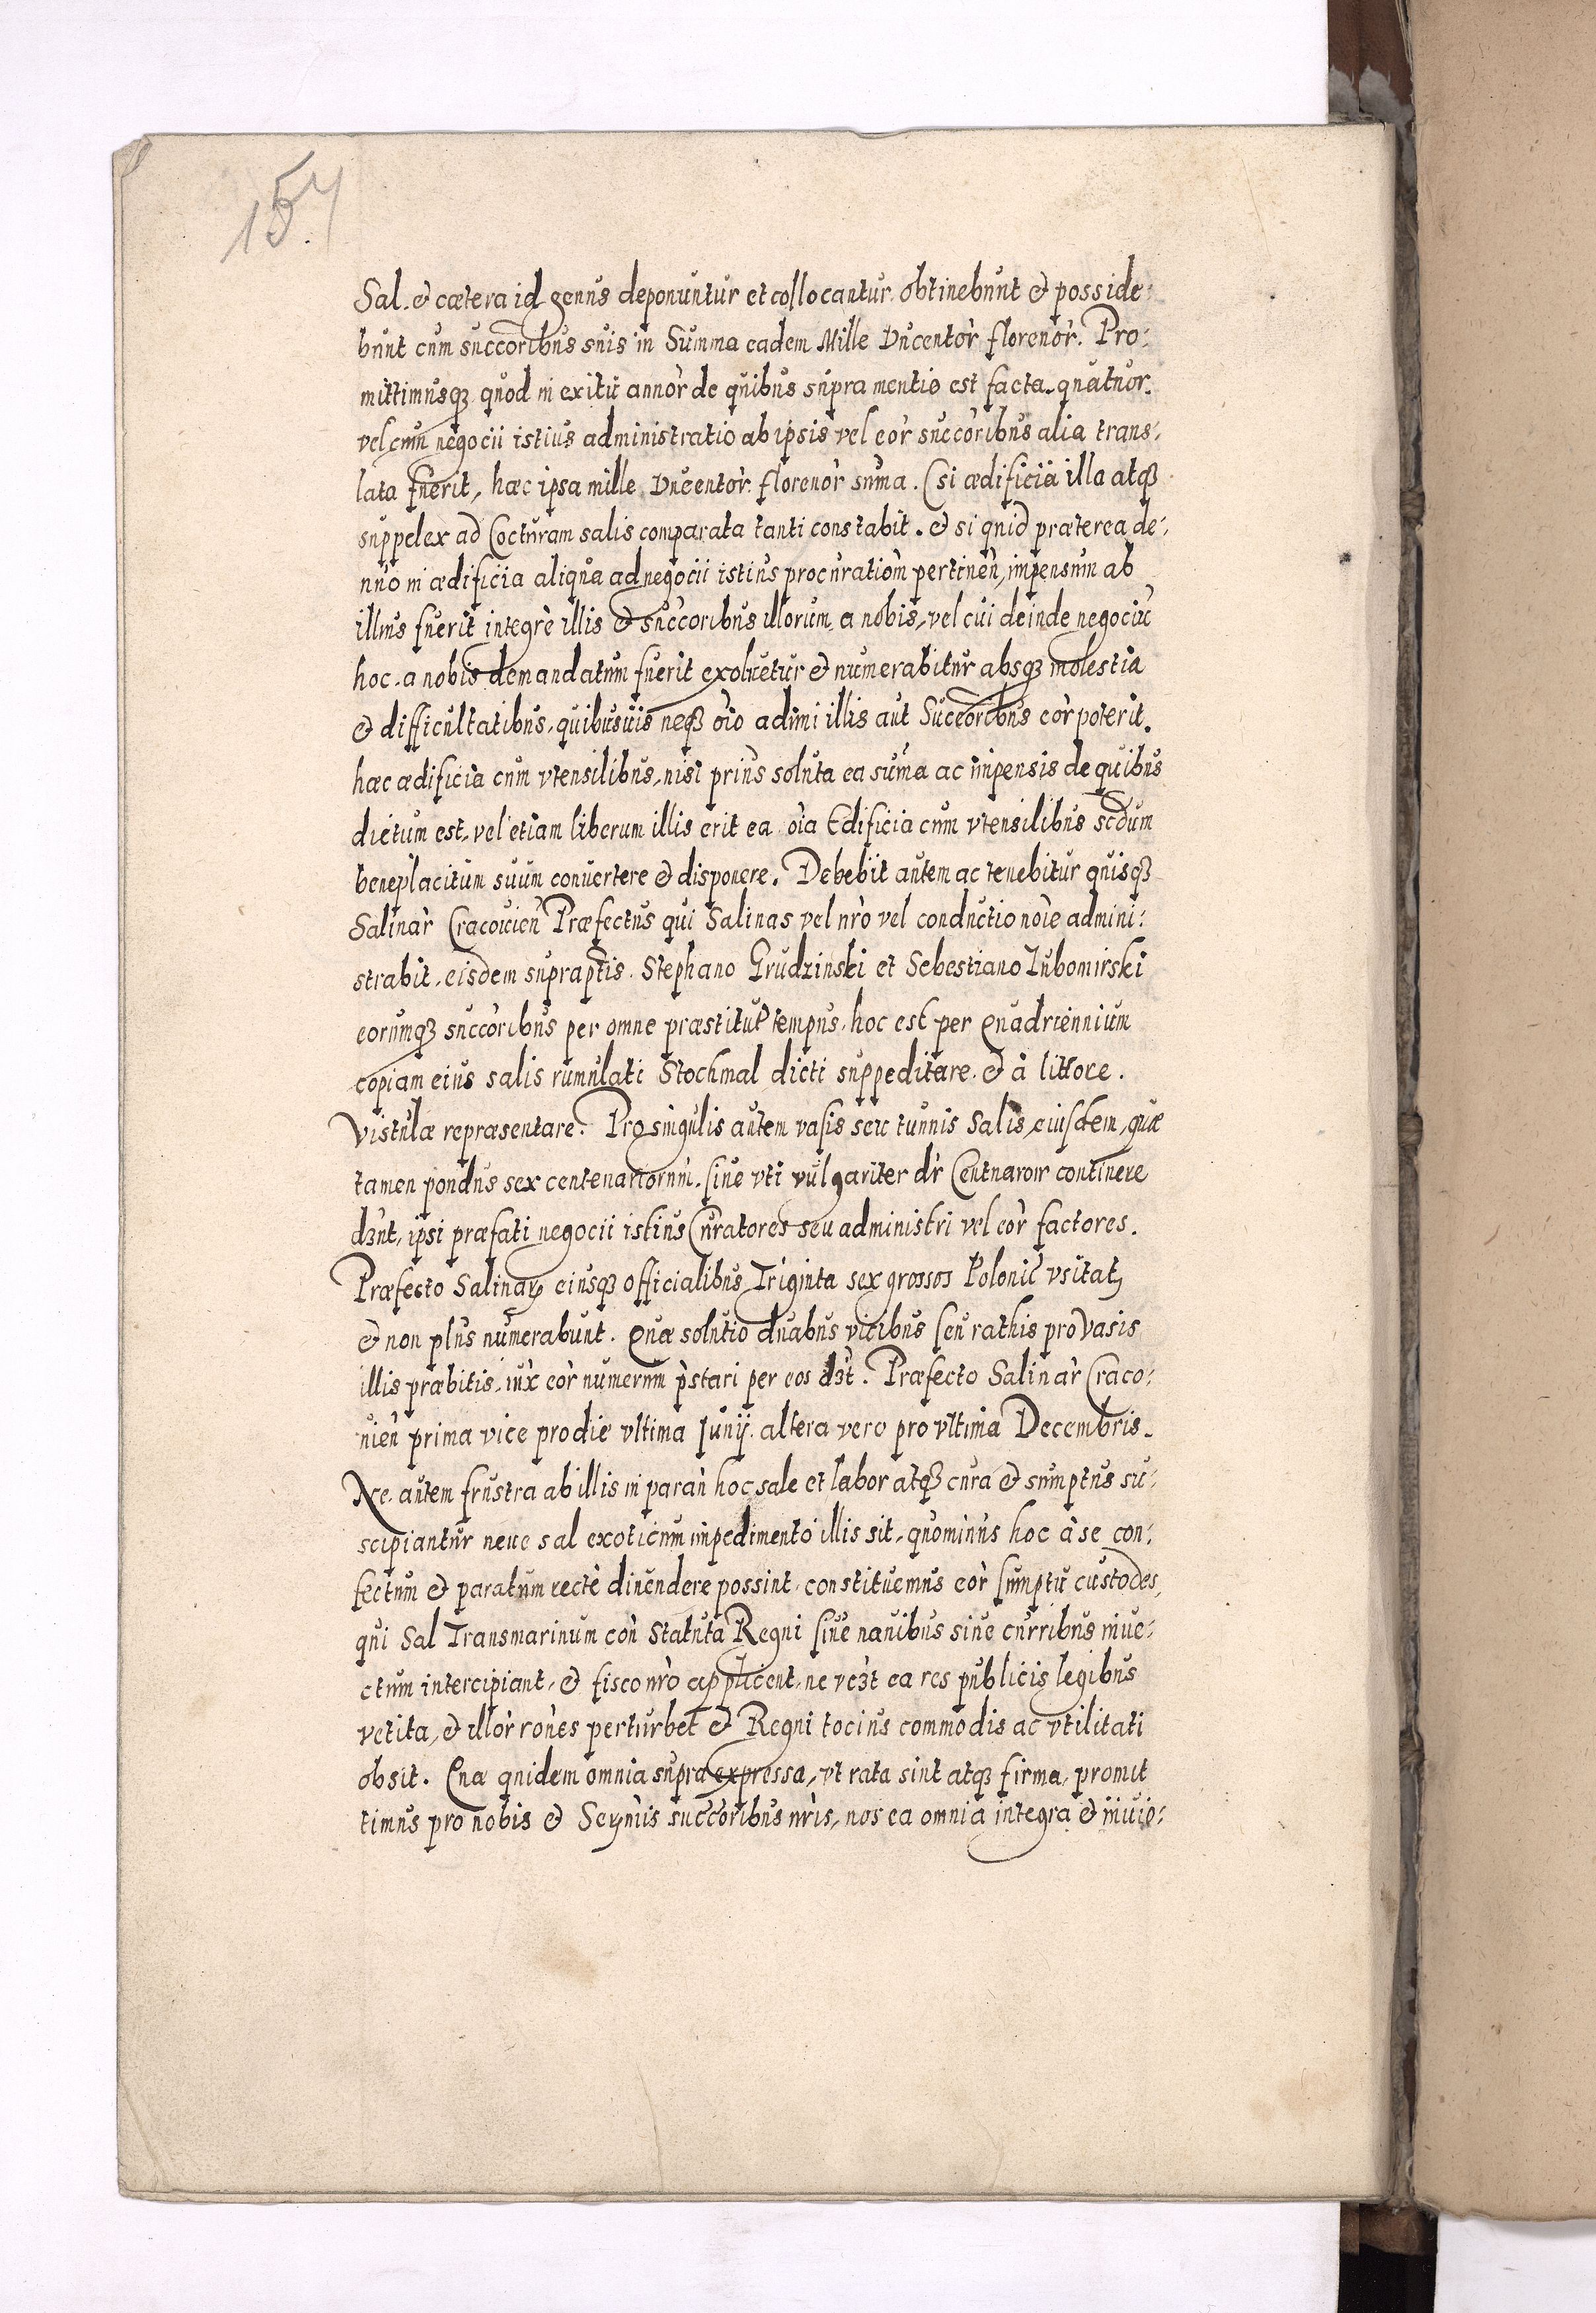 157
Sal. & cætera id genus deponuntur et collocantur. obtinebunt & posside:
bunt cum succoribus suis in Summa eadem Mille Ducentor̀ florenor̀. Pro:
mittimusqꝫ quod in exitu annor̀ de quibus supra mentio est facta. quatuor.
vel cum negocii istius administratio ab ipsis vel eor̀ succoribus alia trans:
lata fuerit, hæc ipsa mille Ducentor̀ florenor̀ suma. (si ædificia illa atqꝫ
suppelex ad Cocturam salis comparata tanti constabit. & si quid præterea de:
nuo in ædificia aliqua ad negocii istius procuratiom̀ pertineǹ, impensum ab
illius fuerit integrè illis & succoribus illorum, a nobis, vel cui deinde negociu
hoc. a nobis demandatum fuerit exoluetur & numerabitur absqꝫ molestia
& difficultatibus, quibusuis neqꝫ oìo adimi illis aut Succoribus eor̀ poterit.
hæc ædificia cum vtensilibus, nisi prius soluta ea suma ac impensis de quibus
dictum est, vel etiam liberum illis erit ea oìa Edificia cum vtensilibus scdum
beneplacitum suum conuertere & disponere. Debebit autem ac tenebitur quisqꝫ
Salinar̀ Cracouień Præfectus qui Salinas vel nr̀o vel conductio noìe admini:
strabit, eisdem supraptis. Stephano Grudzinski et Sebestiano Lubomirski
eorumqꝫ succoribus per omne præstitut̀ tempus, hoc est per Quadriennium
copiam eius salis rumulati Stochmal dicti suppeditare. & à littore.
Vistulæ repræsentare. Pro singulis autem vasis seu tunnis Salis eiusdem, quæ
tamen pondus sex centenariorum. siue vti vulgariter dr̀ Centnarow continere
dꝫnt, ipsi præfati negocii istius Curatores seu administri vel eor̀ factores.
Præfecto Salinaꝝ eiusqꝫ officialibus Triginta sex grossos Polonic̀ vsitatꝫ
& non plus numerabunt. Quæ solutio duabus vicibus seu rathis pro Vasis
illis præbitis, iux̀ eor̀ numerum p̀stari per eos dꝫt. Præfecto Salinar̀ Craco:
uień prima vice pro die vltima Junij. altera vero pro vltima Decembris.
Ne autem frustra ab illis in paraǹ hoc sale et labor atqꝫ cura & sumptus su:
scipiantur neue sal exoticum impedimento illis sit, quominus hoc à se con:
fectum & paratum rectè diuendere possint, constituemus eor̀ sumptu custodes,
qui Sal Transmarinum coǹ Statuta Regni siue nauibus siue curribus inue:
ctum intercipiant, & fisco nr̀o applicent, ne veꝫt ea res publicis legibus
vetita, & illor̀ rones perturbet & Regni tocius commodis ac vtilitati
obsit. Quæ quidem omnia supra expressa, vt rata sint atqꝫ firma, promit
timus pro nobis & Seŷmis succoribus nr̀is, nos ea omnia integra & inuio: